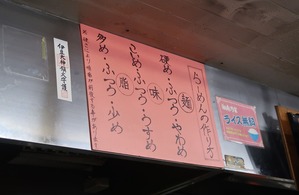 らーめんの作り方
麺
硬め・ふつう・やわめ
味
こいめ・ふつう・うすめ
脂
多め・ふつう・少め
ライス無料